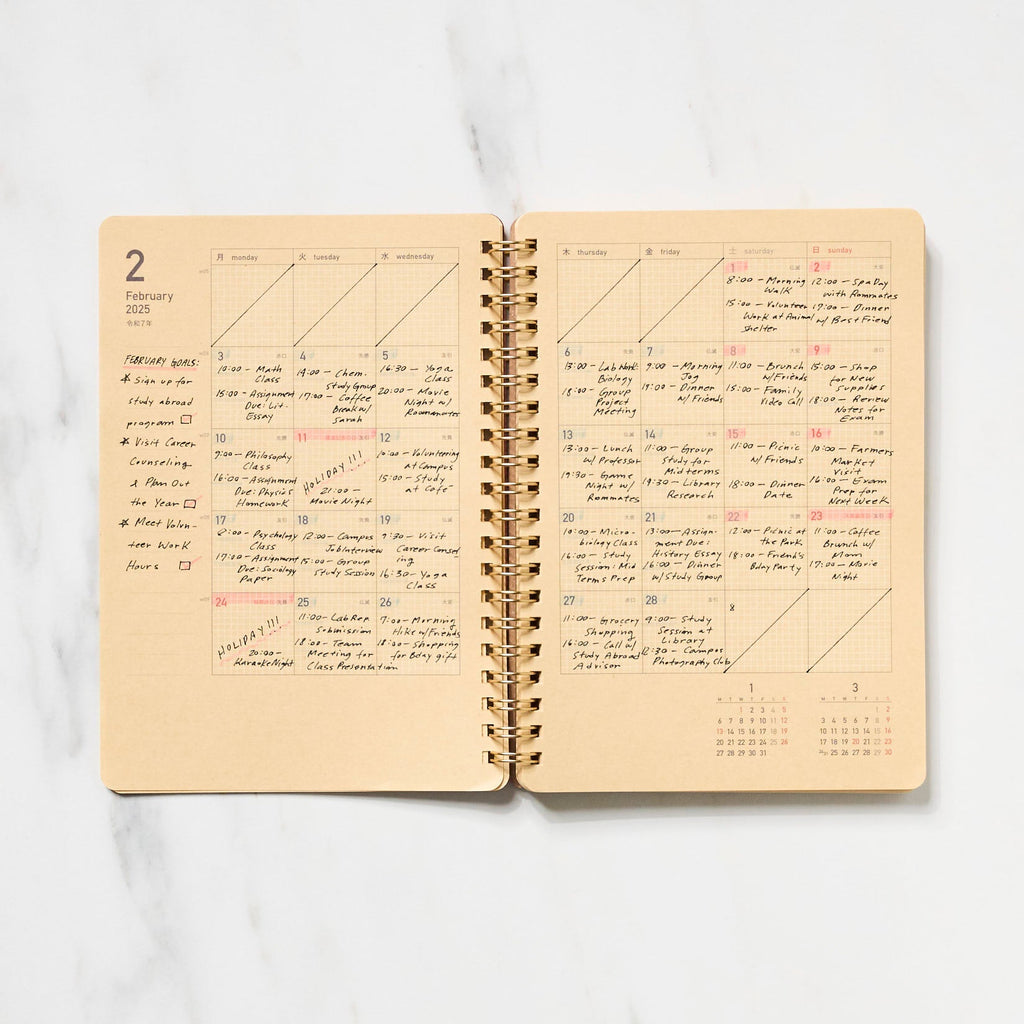 2
February
2025
令和7年
FEBRUARY GOALS:
* Sign up for
study abroad
program
* Visit Career
Counseling
& Plan Out
the Year
* Meet Volun-
teer Work
Hours
月 monday
火 tuesday
水 wednesday
木 thursday
金 friday
土 saturday
日 sunday
1 仏滅
8:00 - Morning
Walk
15:00 - Volunteer
Work at Animal
Shelter
2 大安
12:00 - Spa Day
with Roommates
17:00 - Dinner
w/ Best Friend
3 赤口
10:00 - Math
Class
15:00 - Assignment
Due: Lit.
Essay
4 先勝
14:00 - Chem.
Study Group
17:00 - Coffee
Break w/
Sarah
5 友引
16:30 - Yoga
Class
20:00 - Movie
Night w/
Roommates
6 先負
13:00 - Lab Work:
Biology
18:00 - Group
Project
Meeting
7 仏滅
9:00 - Morning
Jog
19:00 - Dinner
w/ Friends
8 大安
11:00 - Brunch
w/ Friends
15:00 - Family
Video Call
9 赤口
15:00 - Shop
for New
Supplies
18:00 - Review
Notes for
Exam
10 先勝
9:00 - Philosophy
Class
16:00 - Assignment
Due: Physics
Homework
11 友引
HOLIDAY!!!
21:00 -
Movie Night
12 先負
10:00 - Volunteering
at Campus
15:00 - Study
at Café
13 仏滅
11:00 - Lunch
w/ Professor
19:30 - Game
Night w/
Roommates
14 大安
11:00 - Group
Study for
Midterms
19:30 - Library
Research
15 赤口
11:00 - Picnic
w/ Friends
18:00 - Dinner
Date
16 先勝
10:00 - Farmers
Market
Visit
16:00 - Exam
Prep for
Next Week
17 友引
8:00 - Psychology
Class
17:00 - Assignment
Due: Sociology
Paper
18 先負
12:00 - Campus
Job Interview
15:00 - Group
Study Session
19 仏滅
9:30 - Visit
Career Counsel
ing
16:30 - Yoga
Class
20 大安
10:00 - Micro-
biology Class
16:00 - Study
Session: Mid
Terms Prep
21 赤口
13:00 - Assign-
ment Due:
History Essay
16:00 - Dinner
w/ Study Group
22 先勝
12:00 - Picnic at
the Park
18:00 - Friend's
Bday Party
23 友引
11:00 - Coffee
Brunch w/
Mom
17:00 - Movie
Night
24 先負
HOLIDAY!!!
20:00 -
Karaoke Night
25 仏滅
11:00 - Lab Rep.
Submission
18:00 - Team
Meeting for
Class Presentation
26 大安
7:00 - Morning
Hike w/ Friends
18:00 - Shopping
for Bday gift
27 赤口
11:00 - Grocery
Shopping
16:00 - Call w/
Study Abroad
Advisor
28
9:00 - Study
Session at
Library
12:30 - Campus
Photography Club
8
1
M T W T F S S
1 2 3 4 5
6 7 8 9 10 11 12
13 14 15 16 17 18 19
20 21 22 23 24 25 26
27 28 29 30 31
3
M T W T F S S
1 2
3 4 5 6 7 8 9
10 11 12 13 14 15 16
17 18 19 20 21 22 23
24/31 25 26 27 28 29 30